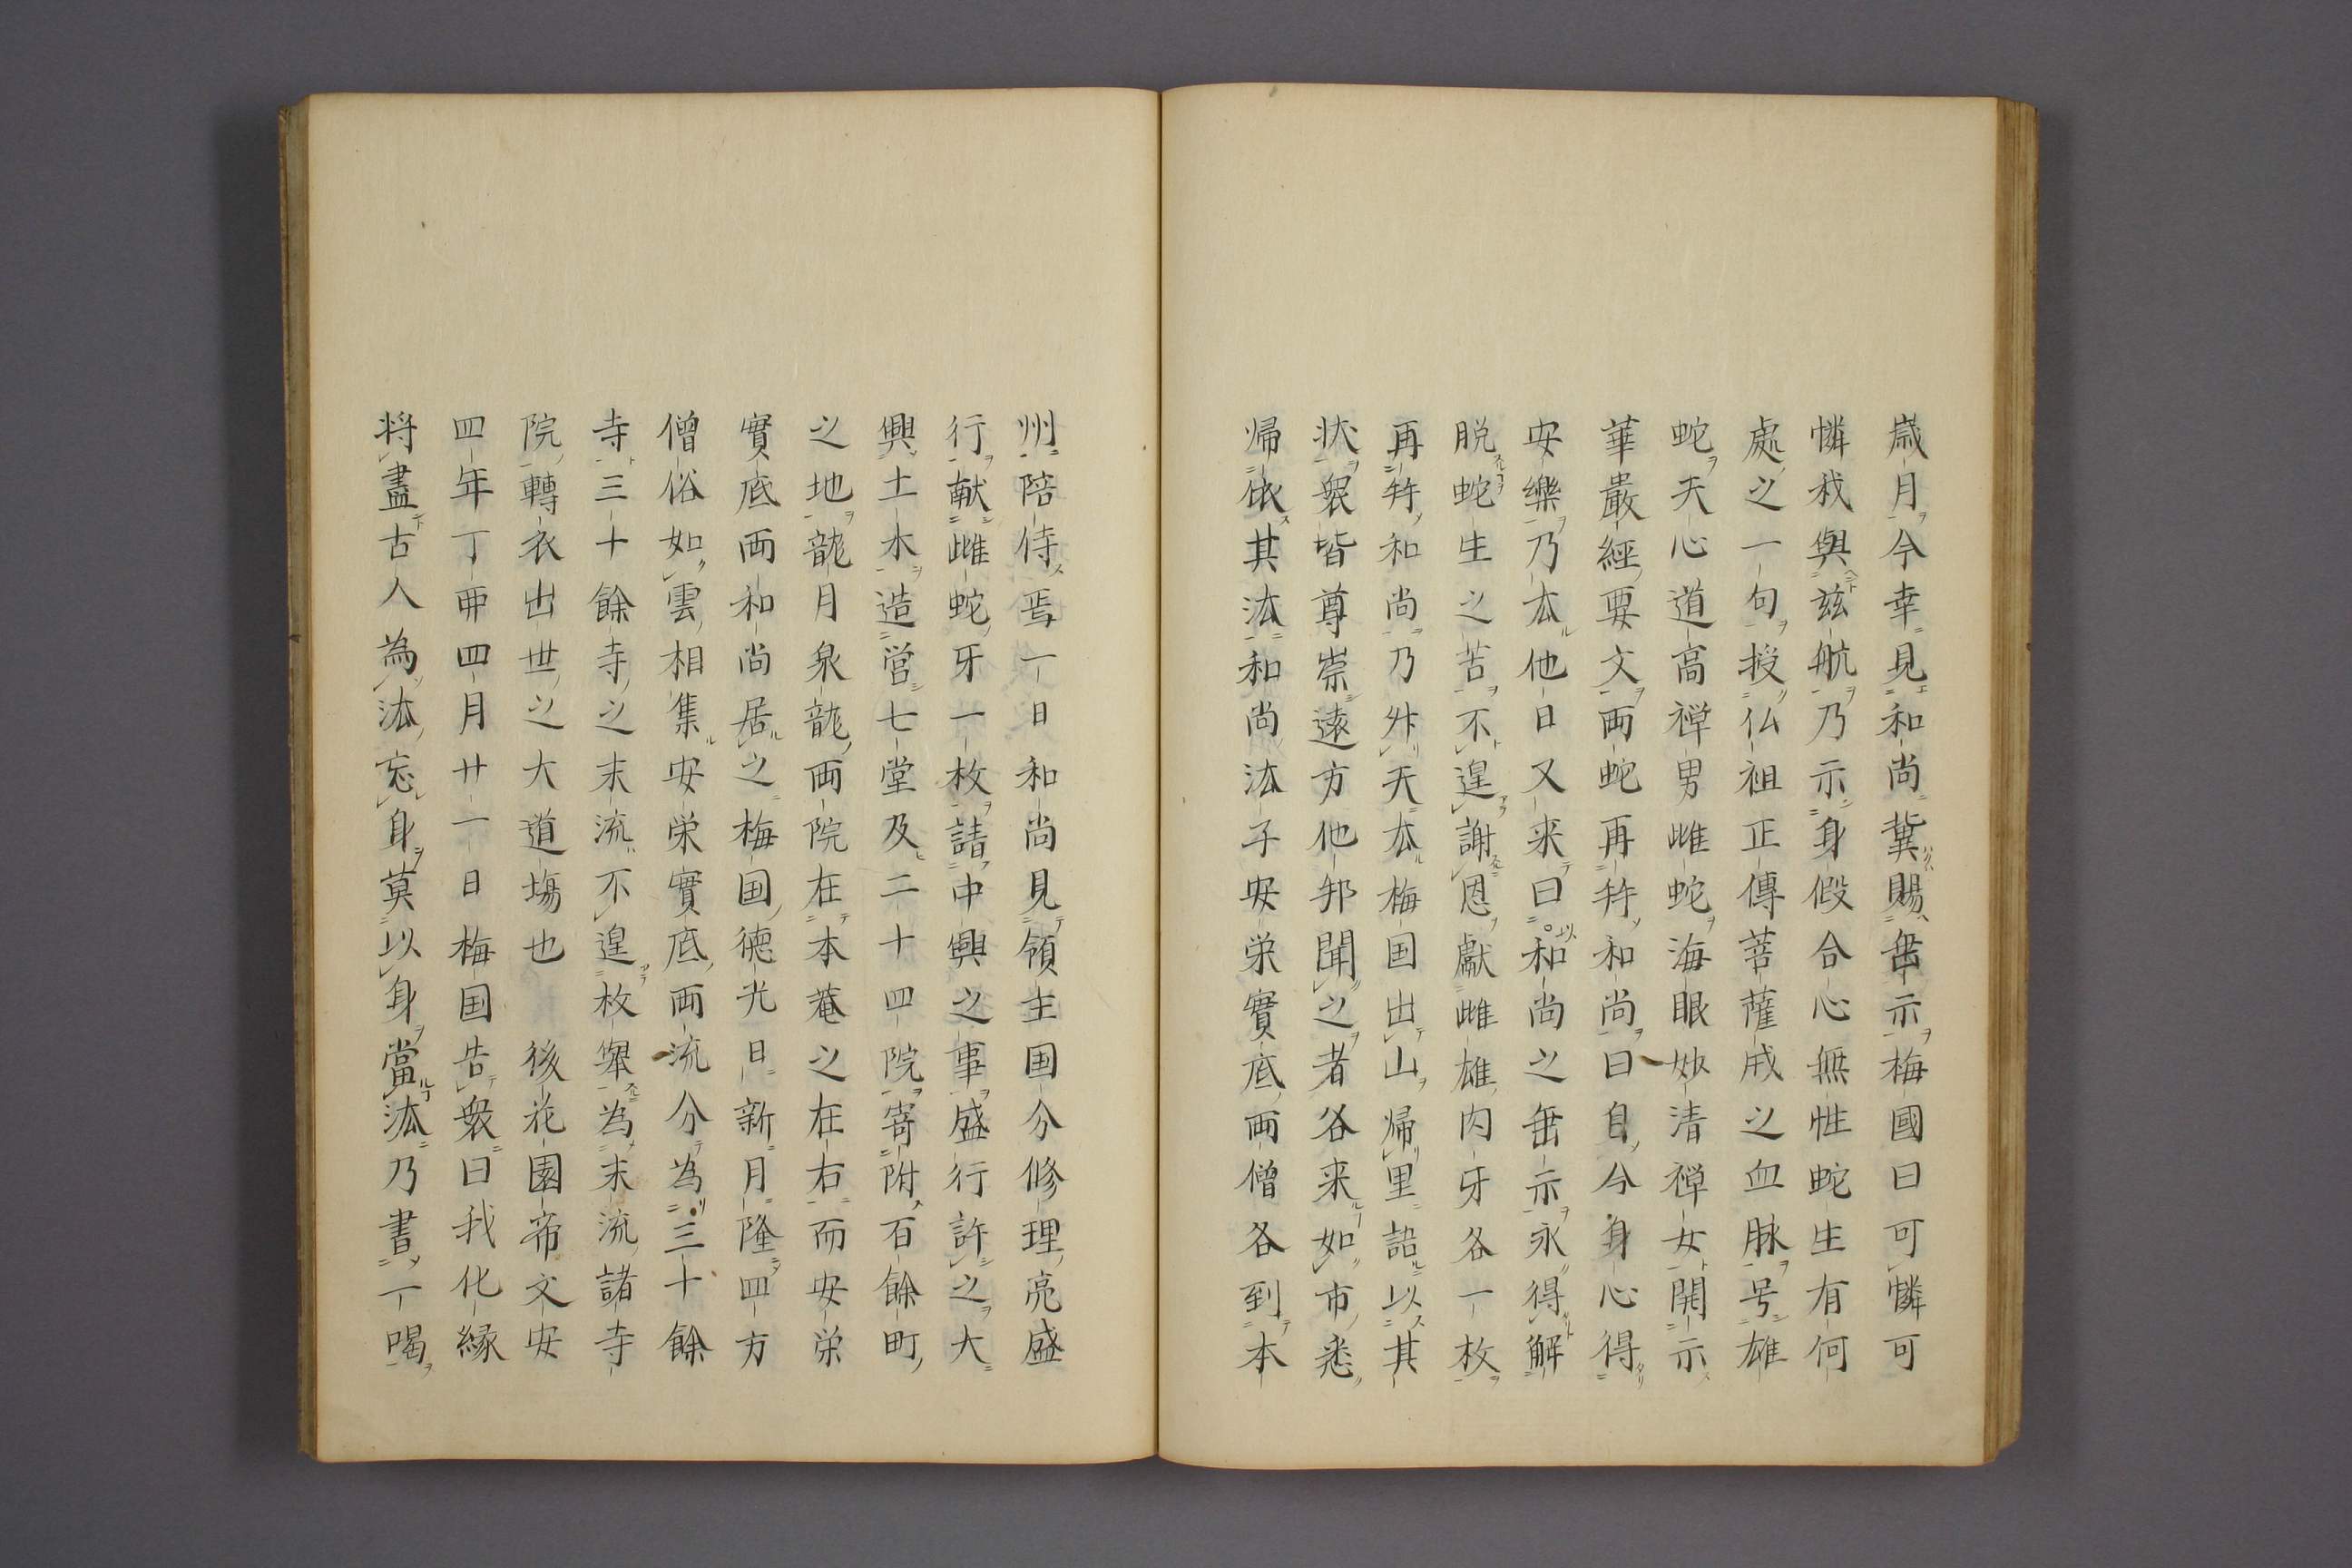 歳月今幸見和尚冀賜垂示梅國曰可憐可
憐我與茲航乃示身假合心無性蛇生有何
處之一句授仏祖正傳菩薩戒之血脉号雄
蛇天心道高禅男雌蛇海眼妙清禅女開示
華嚴經要文両蛇再拜和尚曰自今身心得
安樂乃去他日又来曰以和尚之垂示永得解
脱蛇生之苦不遑謝恩獻雌雄内牙各一枚
再拜和尚乃舛天去梅国出山帰里詔以其
状衆皆尊崇遠方他邦聞之者各来如市悉
帰依其法和尚法子安栄實底両僧各到本
州陪侍焉一日和尚見領主国分修理亮盛
行献雌蛇牙一枚請中興之事盛行許之大
興土木造営七堂及二十四院寄附百餘町
之地龍月泉龍両院在本菴之在右而安栄
實底両和尚居之梅国徳光日新月隆四方
僧俗如雲相集安栄實底両流分為三十餘
寺三十餘寺之末流不遑枚挙為末流諸寺
院轉衣出世之大道場也　後花園帝文安
四年丁夘四月廿一日梅国告衆曰我化縁
将盡古人為法忘身莫以身當法乃書一喝